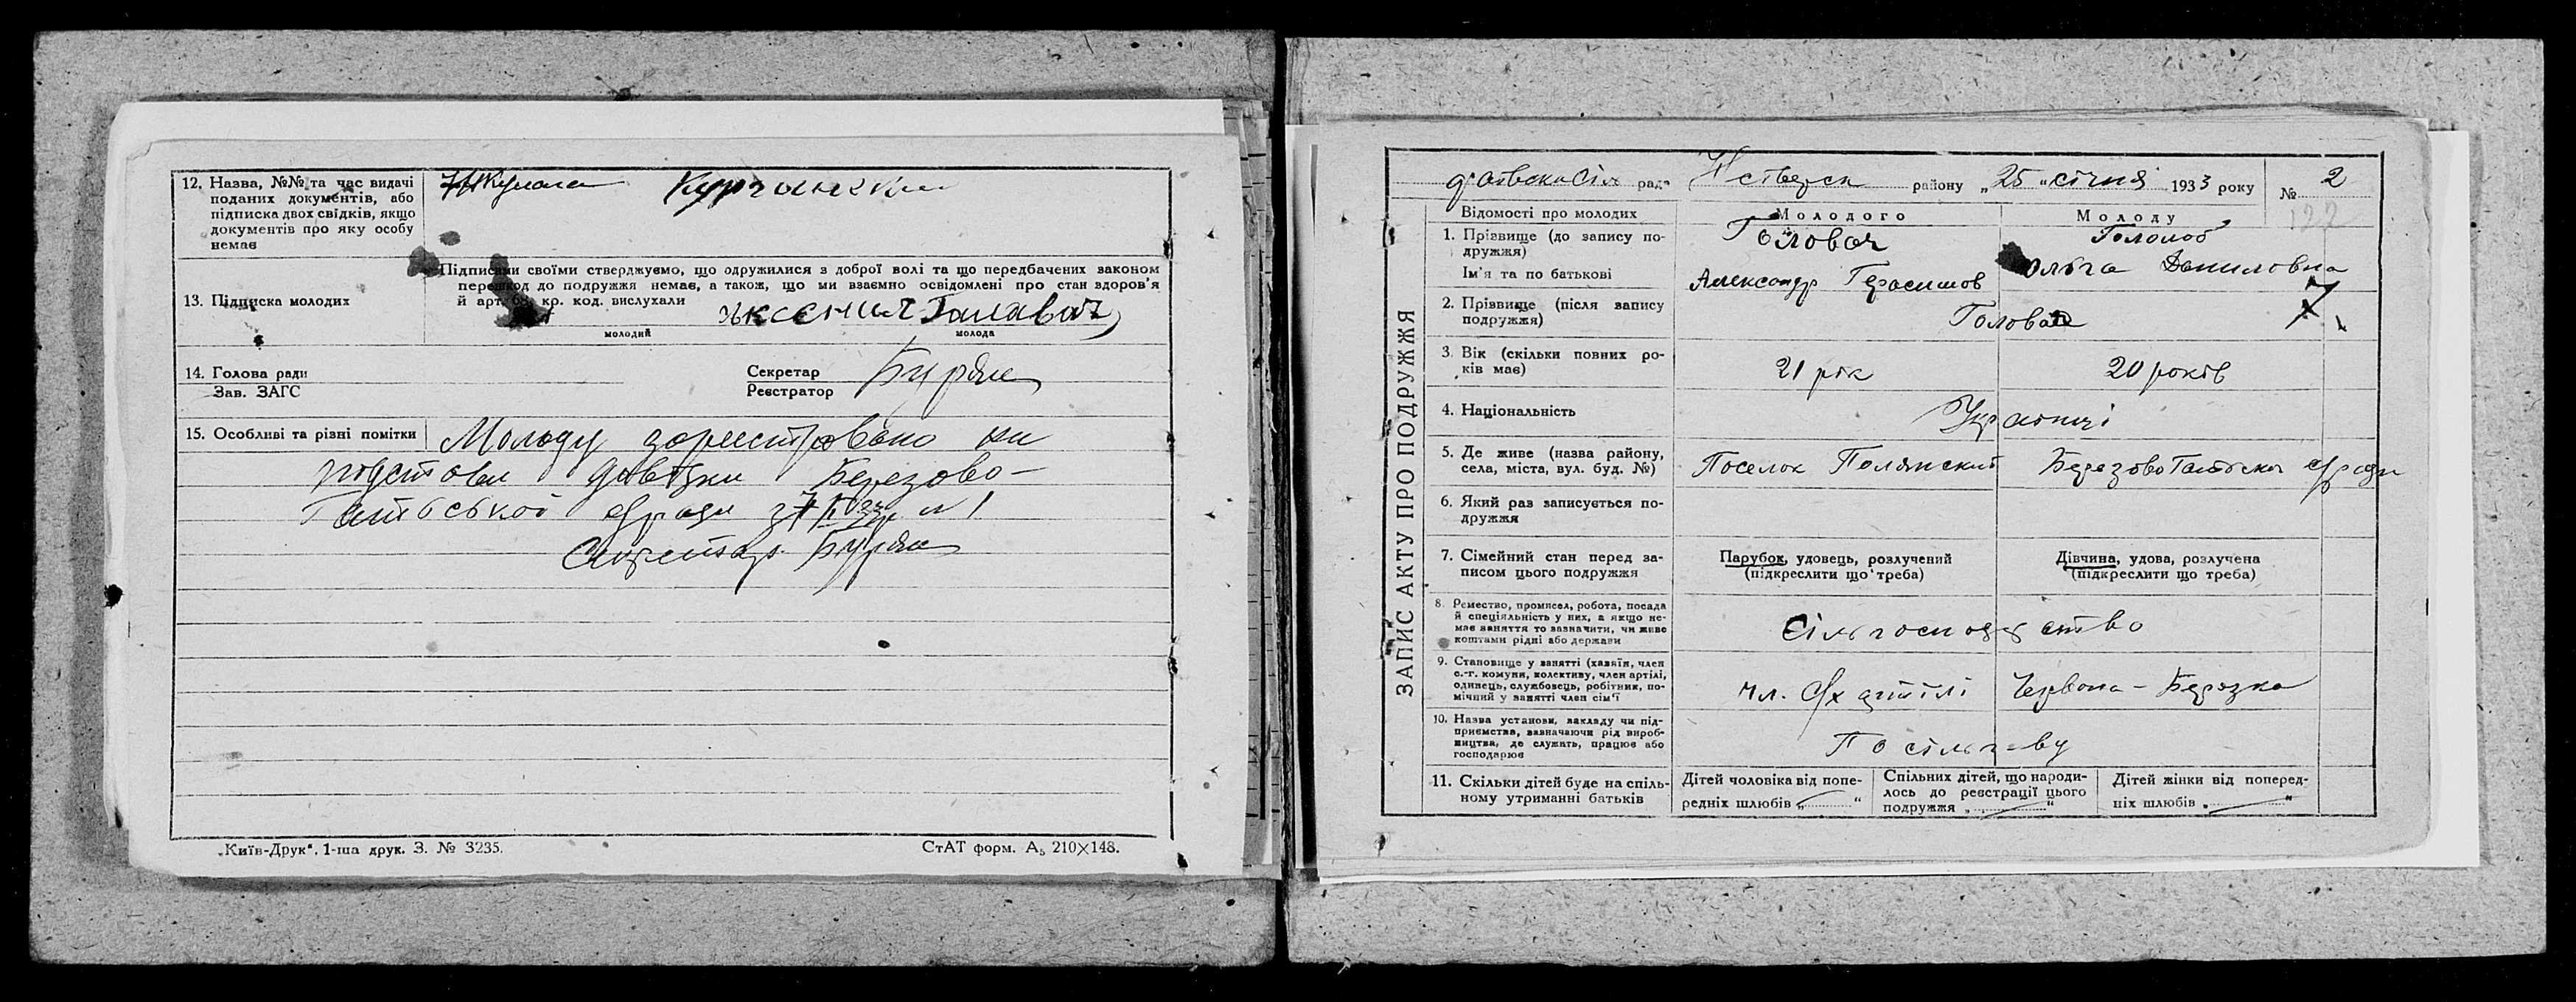 12. Назва, №№ та час видачі
поданих документів, або
підписка двох свідків, якщо
документів про яку особу
немає
Підписами своїми стверджуємо, що одружилися з доброї волі та що передбачених законом
перешкод до подружжя немає, а також, що ми взаємно освідомлені про стан здоров'я
й арт. 68, кр. код. вислухали
13. Підписка молодих
молодий
молода
14. Голова ради
Зав. ЗАГС
Секретар
Реєстратор
Буряк
15. Особливі та різні помітки
Молоду зареєстровано на
підстави довідки Березово-
Гатської с/ради № 1
Секретар Буряк
„Київ-Друк“. 1-ша друк. З. № 3235.
СтАТ форм. А₅ 210×148.
ЗАПИС АКТУ ПРО ПОДРУЖЖЯ
рада району „25 „січня 1933 року № 2
122
Відомості про молодих
Молодого
Молоду
1. Прізвище (до запису по-
дружжя)
Головач
Ім'я та по батькові
Александр Герасимов
Ольга Даниловна
2. Прізвище (після запису
подружжя)
Головач
3. Вік (скільки повних ро-
ків має)
21 рік
20 років
4. Національність
Українці
5. Де живе (назва району,
села, міста, вул. буд. №)
Поселок Полянский
Березово Гатська с/рада
6. Який раз записується по-
дружжя
7. Сімейний стан перед за-
писом цього подружжя
Парубок, удовець, розлучений
(підкреслити що треба)
Дівчина, удова, розлучена
(підкреслити що треба)
8. Ремество, промисел, робота, посада
й спеціяльність у них, а якщо не-
має заняття то зазначити, чи живе
коштами рідні або держави
Сільгосподарство
9. Становище у занятті (хазяїн, член
с.-г. комуни, колективу, член артілі,
одинець, службовець, робітник, по-
мічний у занятті член сім'ї
чл. с/х артілі Червона-Березка
10. Назва установи, закладу чи під-
приємства, зазначаючи рід вироб-
ництва, де служить, працює або
господарює
11. Скільки дітей буде на спіль-
ному утриманні батьків
Дітей чоловіка від попе-
редніх шлюбів „ “
Спільних дітей, що народи-
лось до реєстрації цього
подружжя „ “
Дітей жінки від поперед-
ніх шлюбів „ “